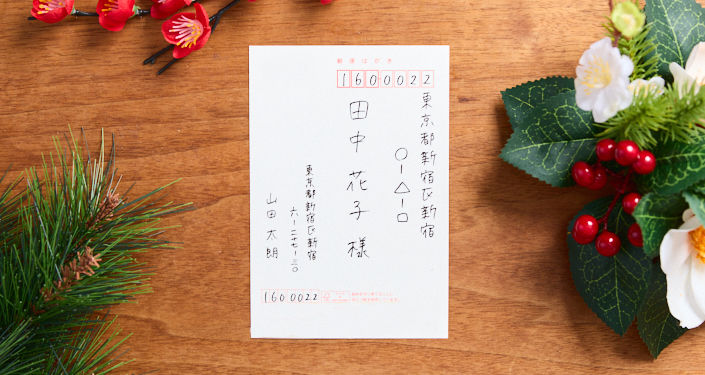 郵便はがき
1600022
東京都新宿区新宿
○ー△ー□
田中花子様
東京都新宿区新宿
六ー二十七ー三〇
山田太朗
1600022